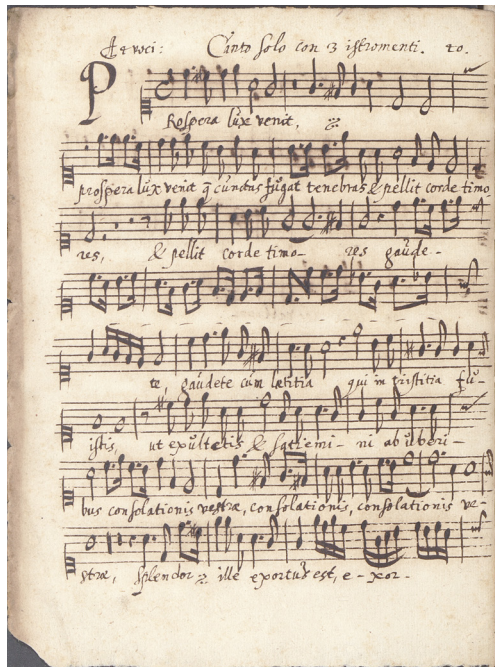 A 4 voci: Canto solo con 3 istromenti. 20.
PRospera lux venit,
prospera lux venit q̃ cunctas fugat tenebras & pellit corde timo
res, & pellit corde timo- res gaude-
te, gaudete cum lætitia qui in tristitia fu-
istis, ut exultetis & satiemi- ni ab uberi-
bus consolationis vestræ, consolationis, consolationis ve-
stræ, splendor ille exortus est, e- xor-